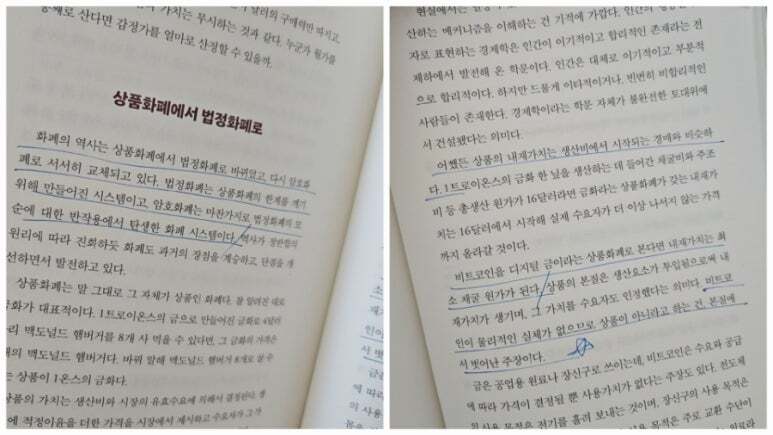 중째로 산다면 감정가를 얼마로 산정할 수 있을까.
상품화폐에서 법정화폐로
화폐의 역사는 상품화폐에서 법정화폐로 바뀌었고, 다시 암호화
폐로 서서히 교체되고 있다. 법정화폐는 상품화폐의 한계를 깨기
위해 만들어진 시스템이고, 암호화폐는 마찬가지로 법정화폐의 모
순에 대한 반작용에서 탄생한 화폐 시스템이다. 역사가 정반합의
원리에 따라 진화하듯 화폐도 과거의 장점을 계승하고, 단점을 개
선하면서 발전하고 있다.
상품화폐는 말 그대로 그 자체가 상품인 화폐다. 잘 알려진 대로
금화가 대표적이다. 1트로이온스의 금으로 만들어진 금화로 4달러
리 맥도널드 햄버거를 8개 사 먹을 수 있다면, 그 금화의 가격은
개의 맥도널드 햄버거다. 바꿔 말해 맥도널드 햄버거 8개로 살 수
는 상품이 1온스의 금화다.
상품의 가치는 생산비와 시장의 유효수요에 의해서 결정된다. 생
에 적정이윤을 더한 가격을 시장에서 제시하고 수요자가 그 가
산하는 메커니즘을 이해하는 건 기적에 가깝다. 인간의
자로 표현하는 경제학은 인간이 이기적이고 합리적인 존재라는 전
제하에서 발전해 온 학문이다. 인간은 대체로 이기적이고 부분적
으로 합리적이다. 하지만 드물게 이타적이거나, 빈번히 비합리적인
사람들이 존재한다. 경제학이라는 학문 자체가 불완전한 토대위에
서 건설됐다는 의미다.
어쨌든 상품의 내재가치는 생산비에서 시작되는 경매와 비슷하
다. 1트로이온스의 금화 한 닢을 생산하는 데 들어간 채굴비와 주조
비 등 총생산 원가가 16달러라면 금화라는 상품화폐가 갖는 내재가
치는 16달러에서 시작해 실제 수요자가 더 이상 나서지 않는 가격
까지 올라갈 것이다.
비트코인을 디지털 금이라는 상품화폐로 본다면 내재가치는 최
소 채굴 원가가 된다. 상품의 본질은 생산요소가 투입됨으로써 내
재가치가 생기며, 그 가치를 수요자도 인정했다는 의미다. 비트코
인이 물리적인 실체가 없으므로 상품이 아니라고 하는 건, 본질에
서 벗어난 주장이다.
금은 공업용 원료나 장신구로 쓰이는데, 비트코인은 수요와 공급
에 따라 가격이 결정될 뿐 사용가치가 없다는 주장도 있다. 전도체
의 사용 목적은 전기를 흘려 보내는 것이며, 장신구의 사용 목적은